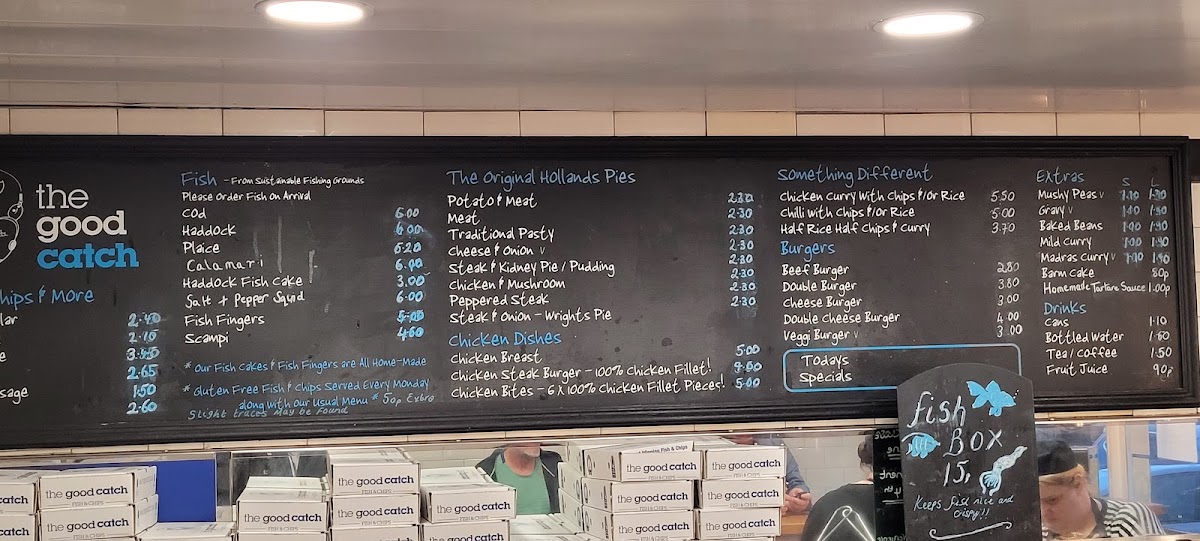 the
good
catch
hips & More
lar
e
sage
2.65
1.50
2.60
Fish - From Sustainable Fishing Grounds
Please Order Fish On Arrival
Cod 6.00
Haddock 6.00
Plaice 6.20
Calamari 6.00
Haddock Fish Cake 3.00
Salt + Pepper Squid 6.00
Fish Fingers 5.00
Scampi 4.60
* Our Fish Cakes & Fish Fingers are All Home-Made
* Gluten Free Fish & Chips Served Every Monday
along with our Usual Menu * 50p Extra
Slight traces May be Found
The Original Hollands Pies
Potato & Meat 2.30
Meat 2.30
Traditional Pasty 2.30
Cheese & Onion v 2.30
Steak & Kidney Pie / Pudding 2.30
Chicken & Mushroom 2.30
Peppered Steak 2.30
Steak & Onion - Wrights Pie
Chicken Dishes
Chicken Breast 5.00
Chicken Steak Burger - 100% Chicken Fillet!
Chicken Bites - 6 x 100% Chicken Fillet Pieces! 5.00
Something Different
Chicken Curry With Chips &/Or Rice 5.50
Chilli With Chips &/Or Rice 5.00
Half Rice Half Chips & Curry 3.70
Burgers
Beef Burger 2.80
Double Burger 3.80
Cheese Burger 3.00
Double Cheese Burger 4.00
Veggi Burger v 3.00
Todays
Specials
Extras S L
Mushy Peas v
Gravy v
Baked Beans
Mild Curry
Madras Curry v
Barm Cake 80p
Homemade Tartare Sauce 1.00p
Drinks
Cans 1.10
Bottled Water 1.60
Tea / Coffee 1.50
Fruit Juice 90p
fish
BOX
15p
Keeps fish nice and
crispy!!
the good catch
FISH & CHIPS
the good catch
FISH & CHIPS
the good catch
FISH & CHIPS
the good catch
FISH & CHIPS
the good catch
FISH & CHIPS
the good catch
FISH & CHIPS
the good catch
the good catch
the good catch
the good catch
the good catch
the good catch